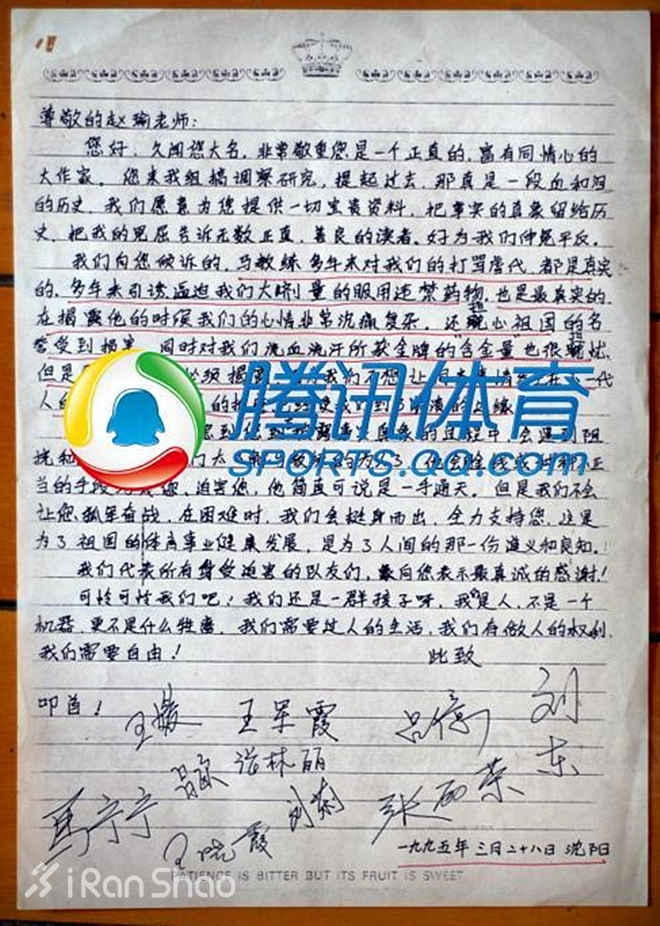 尊敬的赵瑜老师：
您好，久闻您大名，非常敬重您是一个正直的，富有同情心的
大作家。您来我组搞调察研究，提起过去，那真是一段血和泪
的历史，我们愿意为您提供一切宝贵资料，把事实的真象留给历
史，把我的冤屈告诉无数正直、善良的读者。好为我们伸冤平反。
我们向您倾诉的，马教练多年来对我们的打骂虐代，都是真实
的。多年来引诱逼迫我们大剂量的服用违禁药物，也是最真实的。
在揭露他的时候我们的心情非常沉痛复杂。还担心祖国的名
誉受到损害，同时对我们流血流汗所获金牌的"含金量"也很担忧，
但是 必须揭 我们不想让 一代
人的
腾讯体育
SPORTS.QQ.COM
的过程中会遇到阻
挠和
当的手段 您、迫害您，他简直可说是一手通天。但是我们不会
让您孤军奋战，在困难时，我们会挺身而出，全力支持您，这是
为了祖国的体育事业健康发展，是为了人间的那一份道义和良知。
我们代表所有曾受迫害的队友们，最向您表示最真诚的感谢！
可怜可怜我们吧！我们还是一群孩子呀，我们是人，不是一个
机器，更不是什么牲畜，我们需要过人的生活，我们有做人的权利，
我们需要自由！ 此致
叩首！ 王媛 王军霞 吕亿 刘东
吕欧 谥林丽
马宁宁 刘莉 张西荣
王晓霞
一九九五年三月二十八日 沈阳
iRanShao
PATIENCE IS BITTER BUT ITS FRUIT IS SWEET